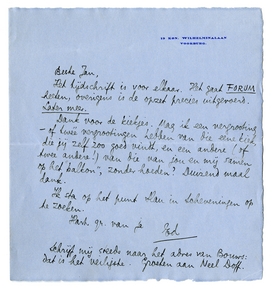 12 KON. WILHELMINALAAN
VOORBURG.
Beste Jan,
Het tijdschrift is voor elkaar. Het gaat FORUM
heeten, overigens is de opzet precies uitgevoerd.
Later meer.
Dank voor de kiekjes. Mag ik een vergrooting
- of twee vergrootingen hebben van die eene kiek,
die jij zelf zoo goed vindt, en een andere (of
twee andere!) van die van jou en mij samen
op het balkon", zonder hoeden? Duizend maal
dank.
Ik sta op het punt Han in Scheveningen op
te zoeken.
Hart. gr. van je
Ed
Schrijf mij steeds naar het adres van Bouws:
dat is het veiligste. Groeten aan Neel Doff.